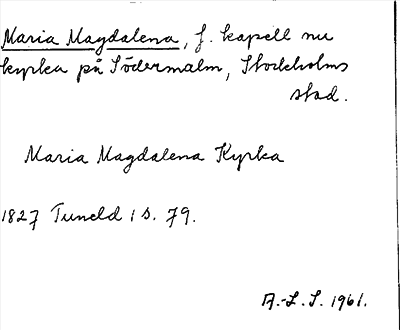 Maria Magdalena, f. kapell nu
kyrka på Södermalm, Stockholms
stad.
Maria Magdalena Kyrka
1827 Tuneld 1 s. 79.
A.-L. S. 1961.